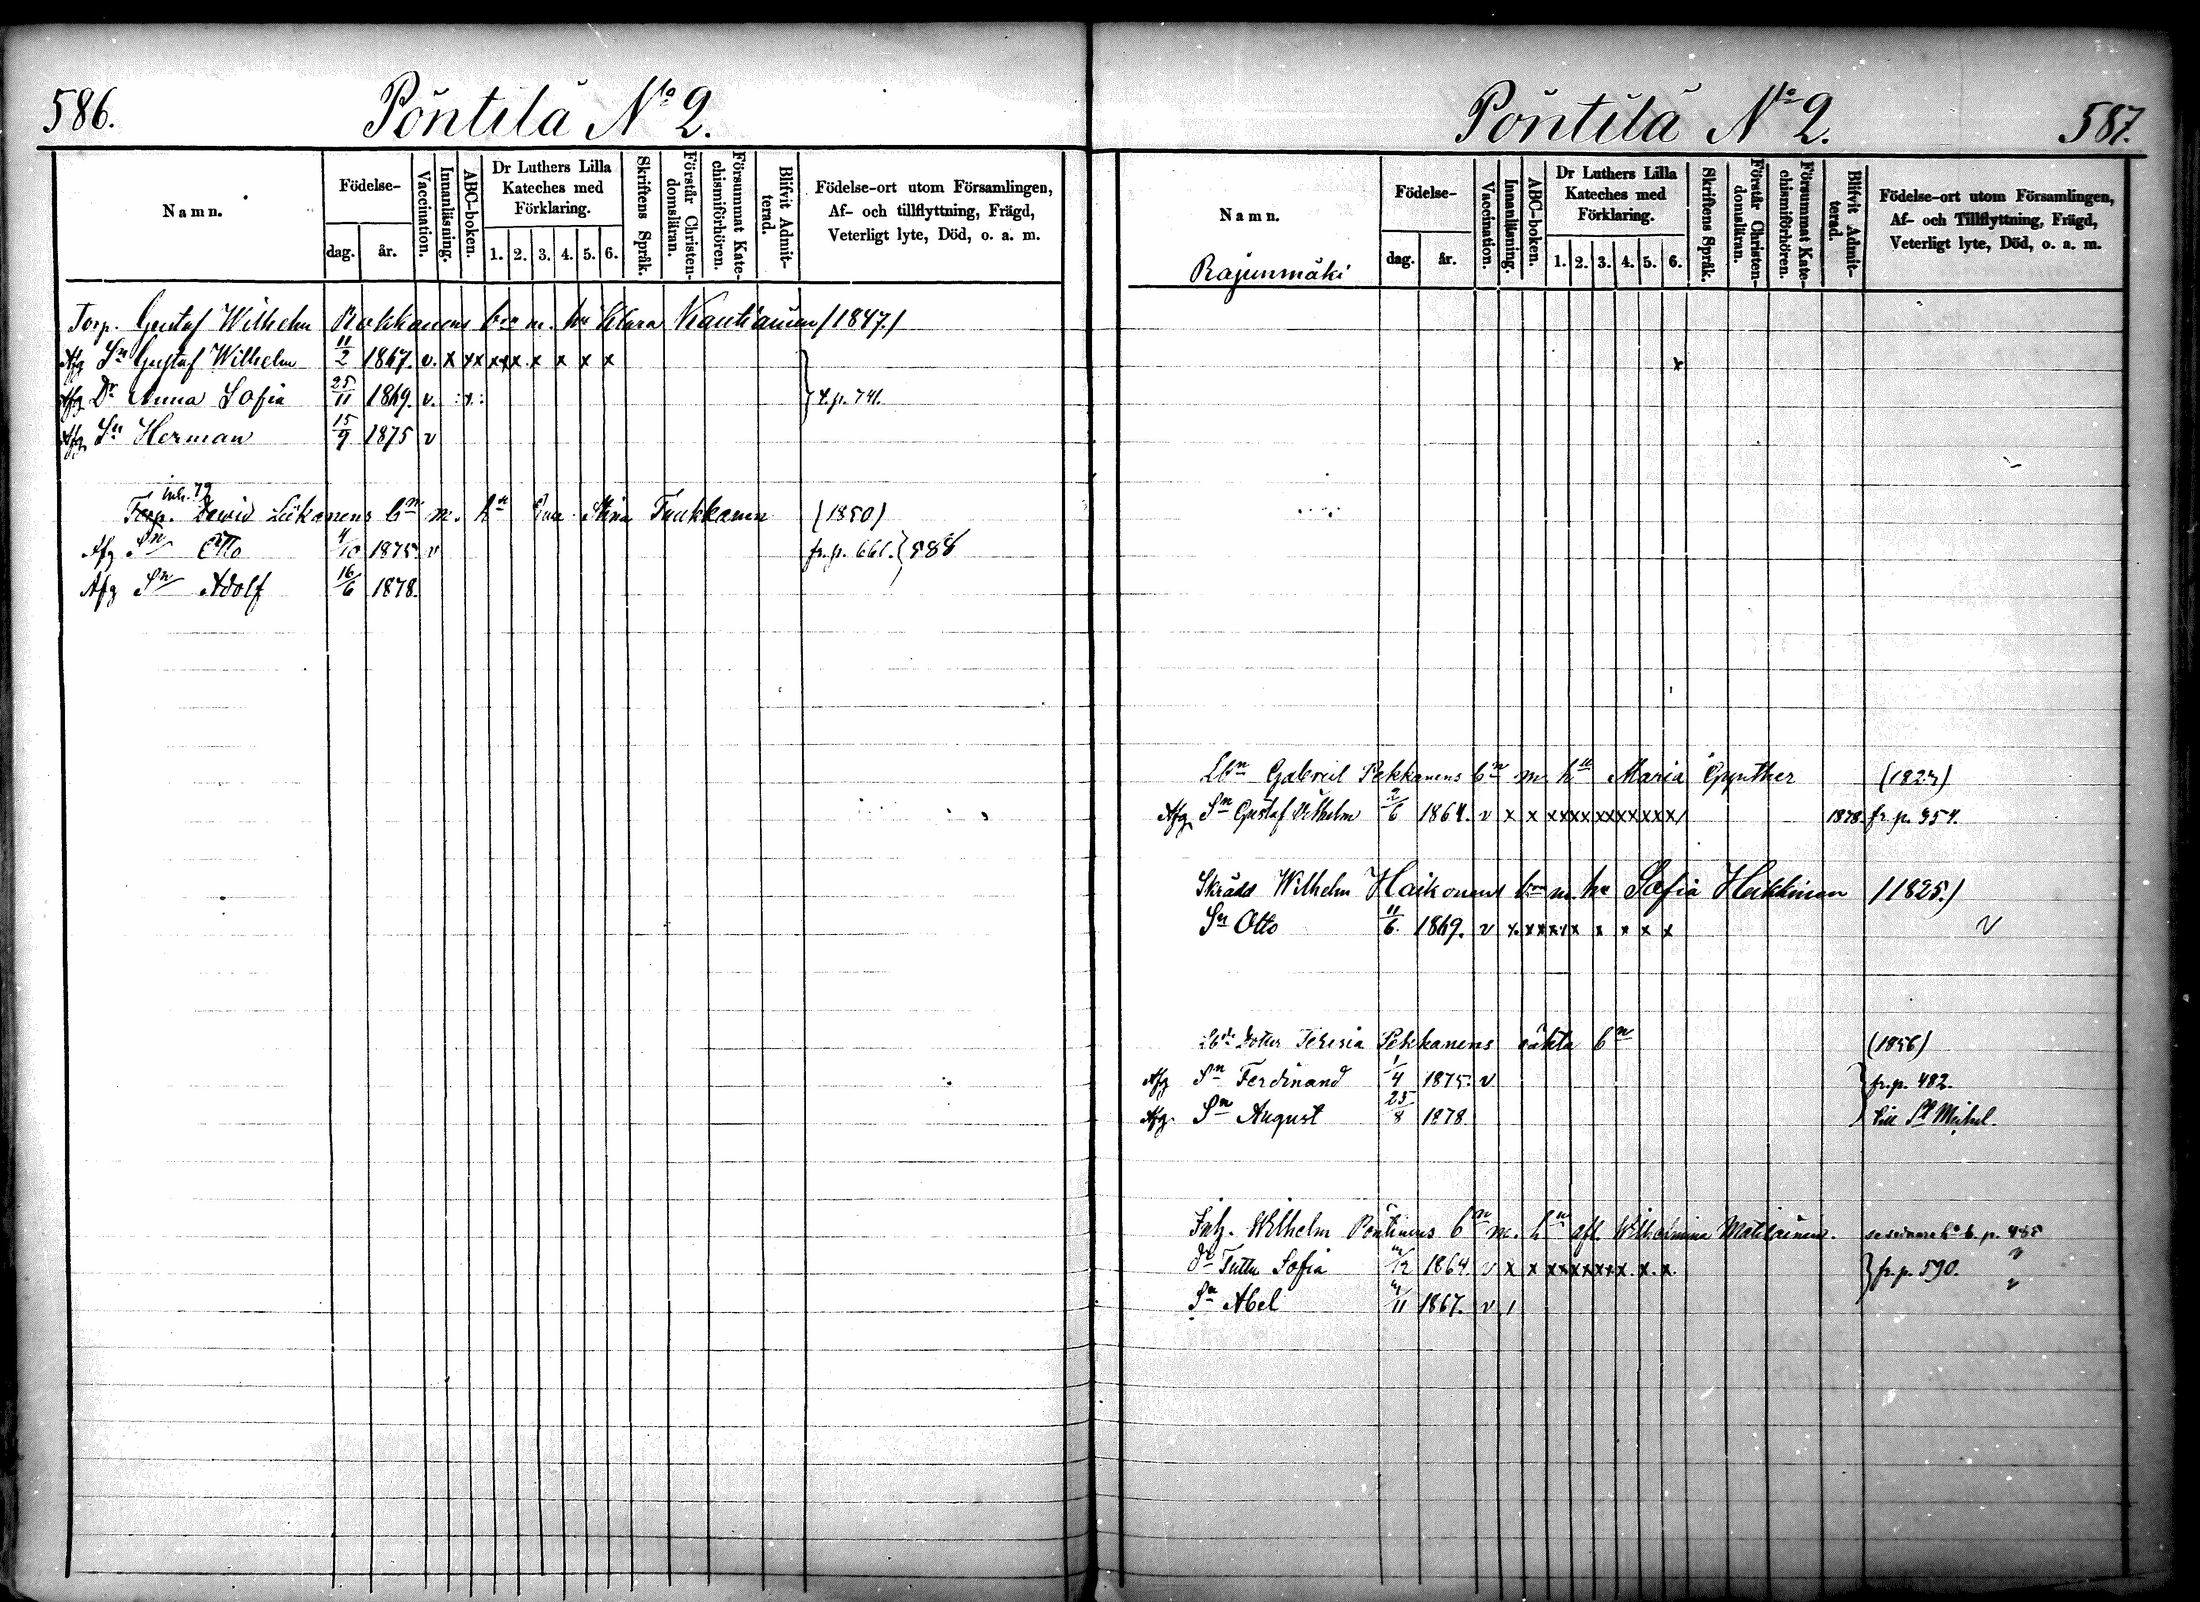 586.
Pöntilä No 2.
Namn.
Födelse-
dag. år.
Vaccination.
Innanläsning.
ABC-boken.
Dr Luthers Lilla Kateches med Förklaring.
1. 2. 3. 4. 5. 6.
Skriftens Språk.
Förstår Christendomsläran.
Försummat Katechismiförhören.
Blifvit Admitterad.
Födelse-ort utom Församlingen,
Af- och tillflyttning, Frägd,
Veterligt lyte, Död, o. a. m.
Torp. Gustaf Wilhelm Rokkanens bn m. hu Klara (1847.)
Afg Sn Gustaf Wilhelm 11/2 1867. v. x xx xxx. x x x x
Afg Dr Anna Sofia 25/11 1869. v. :x: f. p. 741.
Afg Sn Herman 15/9 1875 v
inh. 79
Torp. Dawid Liikanens bn m. hu Stina Tuukkanen (1850)
Afg Sn Otto 4/10 1875 v fr. p. 661. 588
Afg Sn Adolf 16/6 1878.
Pöntilä No 2.
587.
Namn.
Rajunmäki
Födelse-
dag. år.
Vaccination.
Innanläsning.
ABC-boken.
Dr Luthers Lilla Kateches med Förklaring.
1. 2. 3. 4. 5. 6.
Skriftens Språk.
Förstår Christendomsläran.
Försummat Katechismiförhören.
Blifvit Admitterad.
Födelse-ort utom Församlingen,
Af- och Tillflyttning, Frägd,
Veterligt lyte, Död, o. a. m.
x
Lbn Gabriel Pekkanens bn m. hu Maria Gynther
Afg Sn Gustaf Vilhelm 2/6 1864. v x x xxxx xxxxxxx/ 1878. fr. p. 354.
Skrädd Wilhelm Haikonens bn m. hu Sofia Heikkinen (1825.)
Sn Otto 11/6. 1869. v x. xxxxx x x x x v
Dotter Teresia Pekkanens oäkta bn (1856)
Afg Sn Ferdinand 1/4 1875. v fr. p. 482.
Afg. Sn August 25/8 1878 till St Michel.
Inh. Wilhelm Pöntinens bn m. hn afl. Wilhelmina Matilainen. p. 485
dr Sofia /12 1864 v x x xxxxxxx. x. x. fr. p. 590. v
Sn Abel /11 1867. v / v